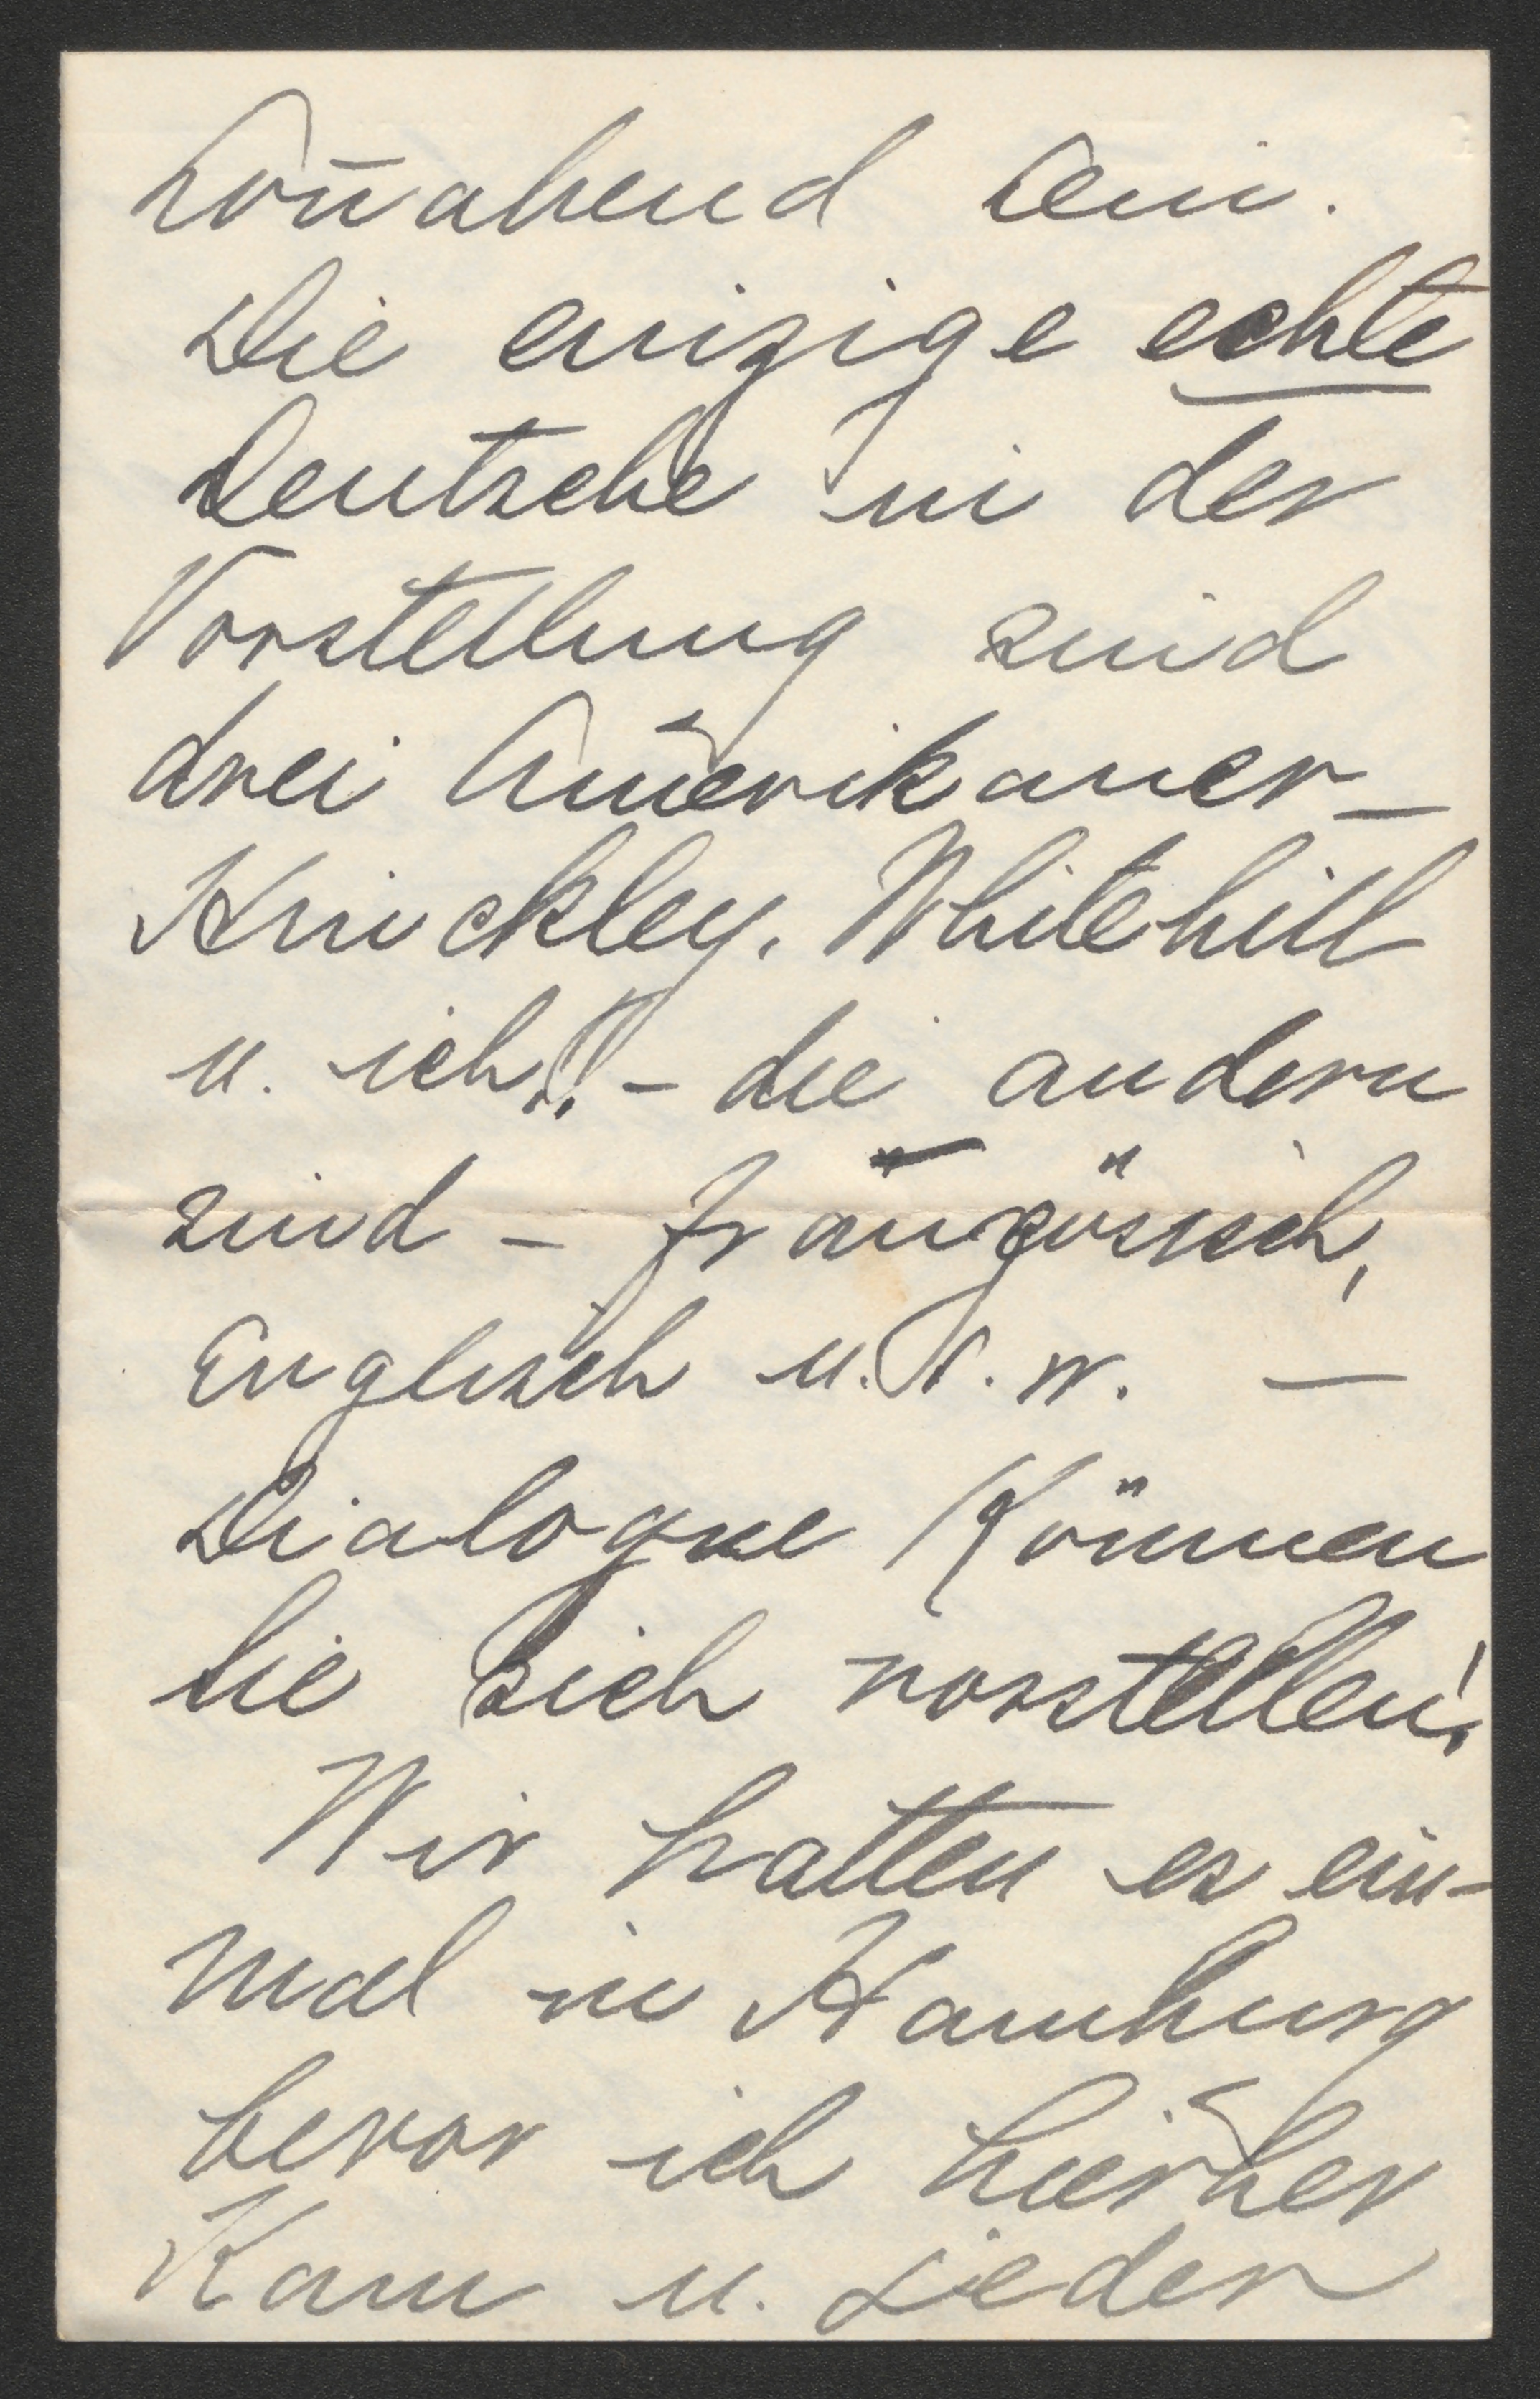 Soñabend sein.
Die einzige echte
Deutsche in der
Vorstellung sind
drei Amerikaner –
Hinckley, Whitehill
u. ich!! – die andern
sind – französisch,
Englisch u. s. w. –
Dialogue Können
Sie sich vorstellen!
Wir hatten es ein-
mal in Hamburg
bevor ich hierher
Kam u. Jeder